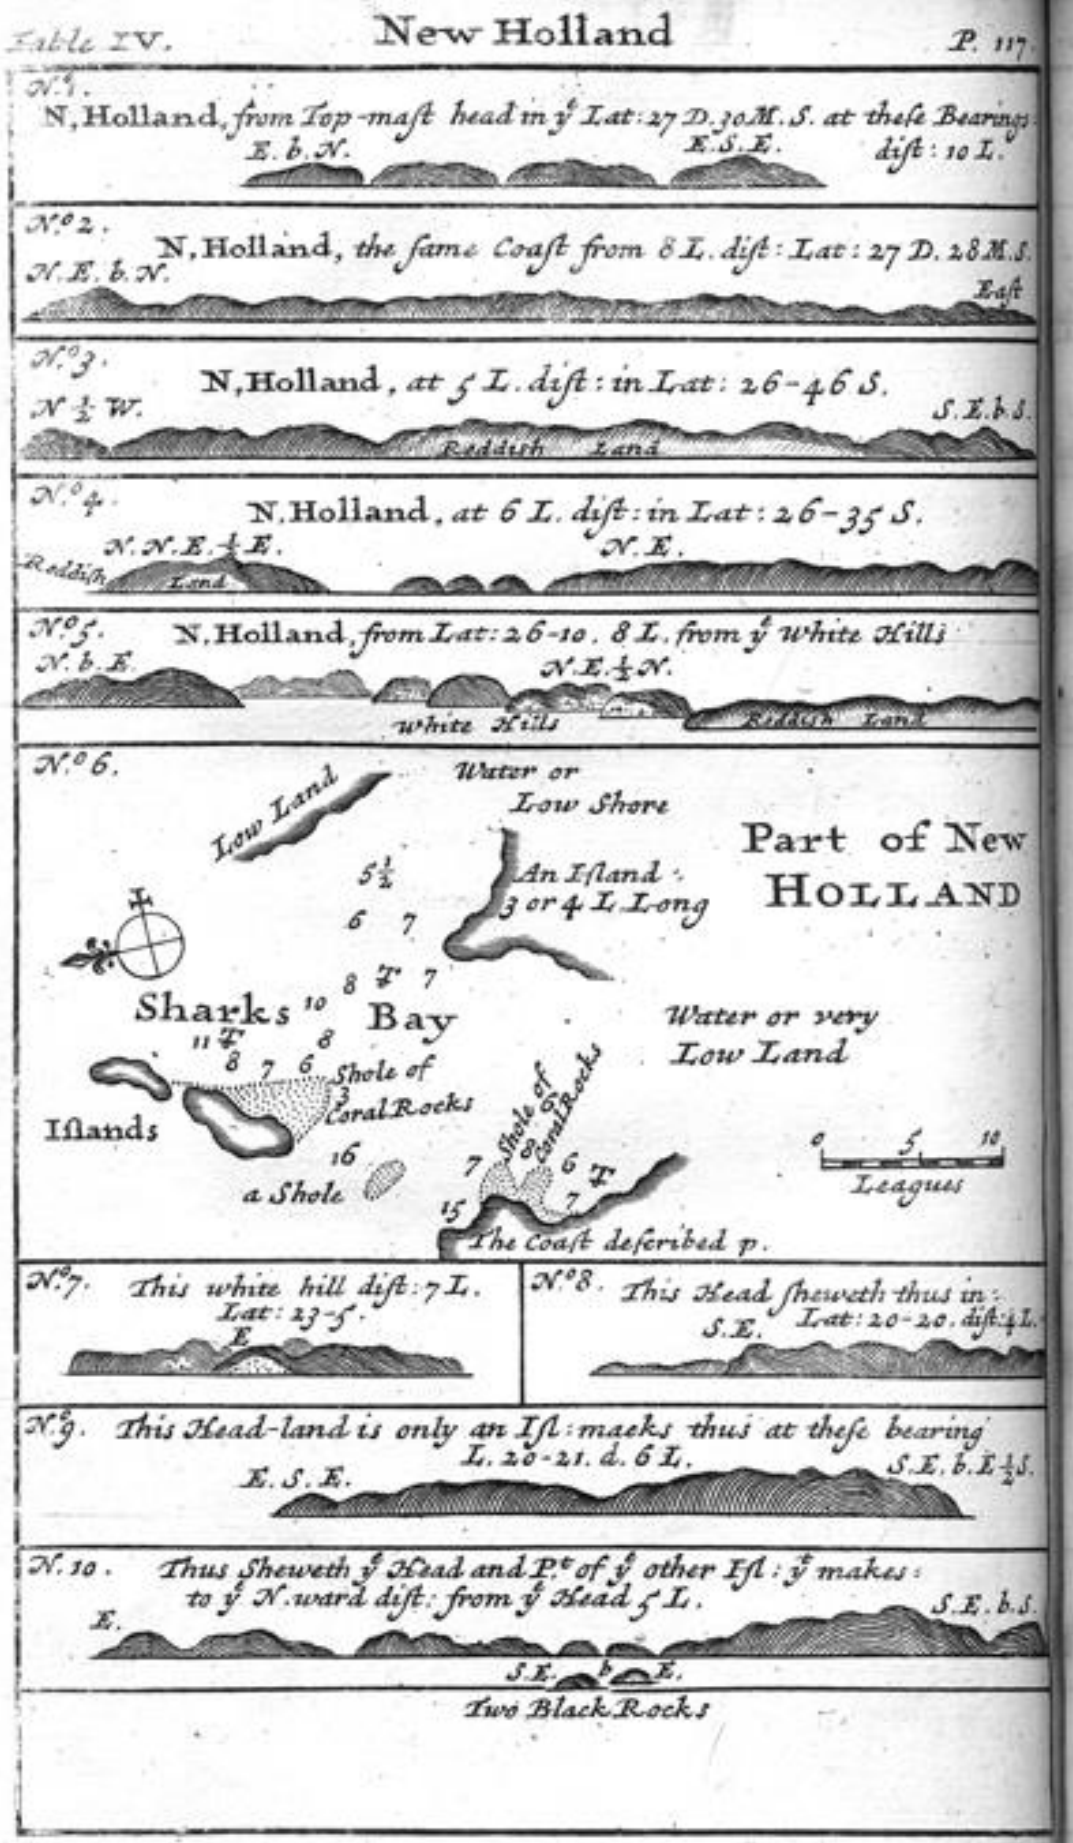 Table IV. New Holland P. 117.
N.º 1.
N, Holland, from Top-maſt head in yͤ Lat: 27 D. 30 M. S. at theſe Bearings:
E. b. N. E. S. E. diſt: 10 L.
N.º 2.
N, Holland, the ſame Coaſt from 8 L. diſt: Lat: 27 D. 28 M. S.
N. E. b. N. Eaſt
N.º 3.
N, Holland, at 5 L. diſt: in Lat: 26-46 S.
N ½ W. S. E. b. S.
Reddish Land
N.º 4.
N. Holland, at 6 L. diſt: in Lat: 26-35 S.
N. N. E. ½ E. N. E.
Reddiſh Land
N.º 5. N, Holland, from Lat: 26-10. 8 L. from yͤ White Hills
N. b. E. N. E. ½ N.
White Hills Reddish Land
N.º 6.
Low Land
Water or
Low Shore
Part of New
HOLLAND
5½
An Iſland :
3 or 4 L Long
6 7
8 7
Sharks 10 Bay
Water or very
Low Land
11 8
8 7 6 Shole of
3
Coral Rocks
Iſlands
Shole of
Coral Rocks
8 6
16
a Shole
7 6
0 5 10
Leagues
15 7
The Coaſt deſcribed p.
N.º 7. This white hill diſt: 7 L.
Lat: 23-5.
E
N.º 8. This Head ſheweth thus in:
S. E. Lat: 20-20. diſt: 4 L.
N.º 9. This Head-land is only an Iſl: maeks thus at theſe bearing
L. 20-21. d. 6 L.
E. S. E. S. E. b. E ½ S.
N. 10. Thus Sheweth yͤ Head and P.ͭ of yͤ other Iſl: yͭ makes:
to yͤ N. ward diſt: from yͤ Head 5 L.
E. S. E. b. S.
S. E. b E.
Two Black Rocks